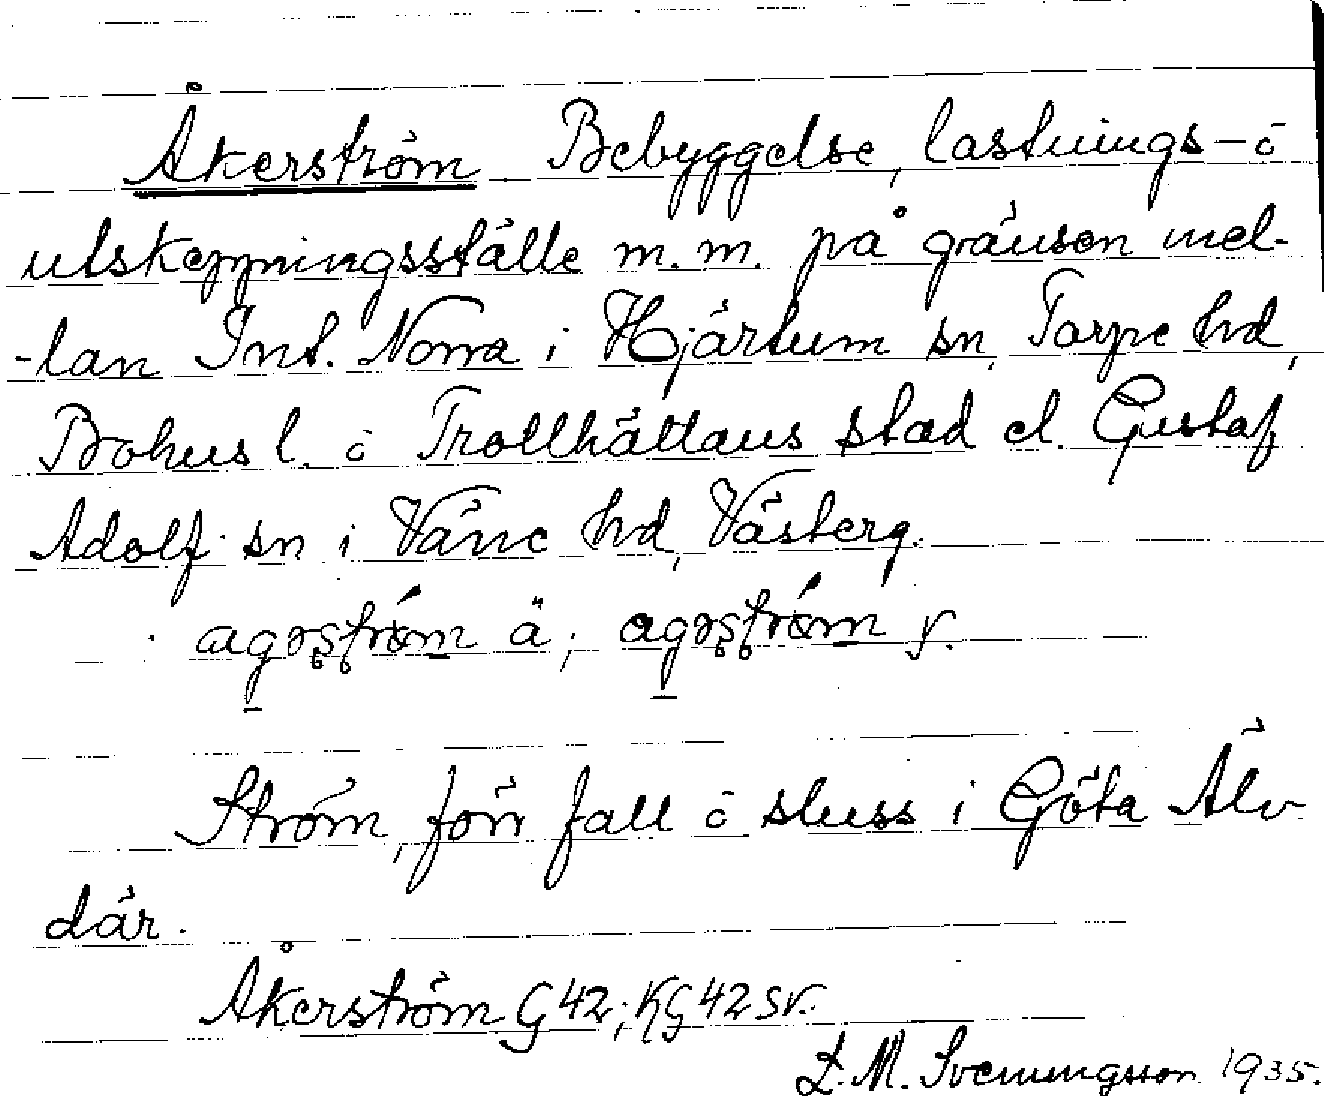 Åkerström Bebyggelse, lastnings- o
utskeppningsställe m.m. på gränsen mel-
-lan Int. Norra i Hjärtum sn, Torpe hd,
Bohus l. o Trollhättans stad el. Gustaf
Adolf sn i Väne hd, Västerg.
agəʂtröm ä; agəʂtröm y.
Ström, förr fall o sluss i Göta Älv
där.
Åkerström G 42; KG 42 sv.
L. M. Svenungsson 1935.